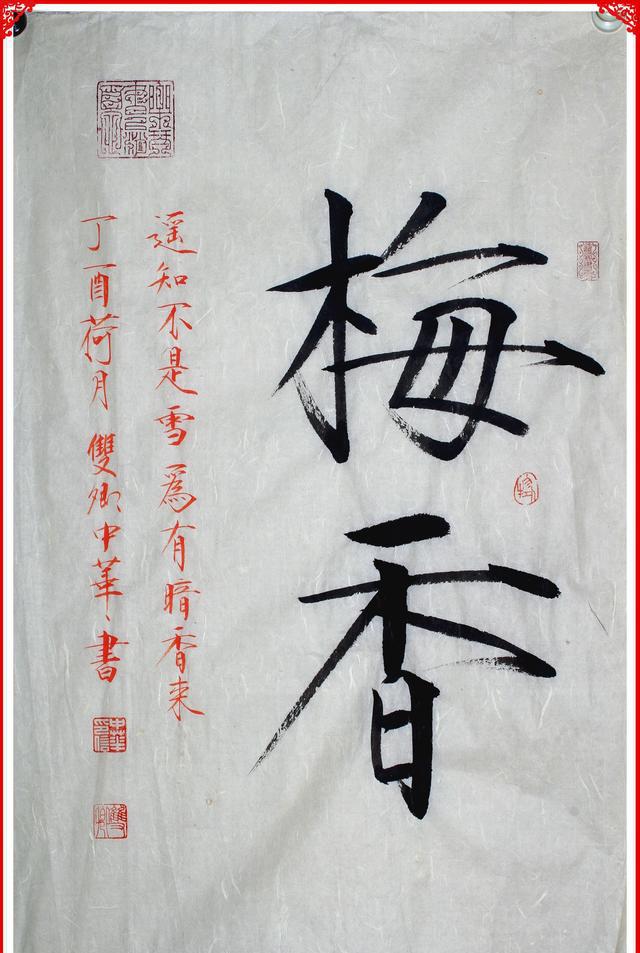 梅香
遥知不是雪為有暗香来
丁酉荷月雙卿中華書